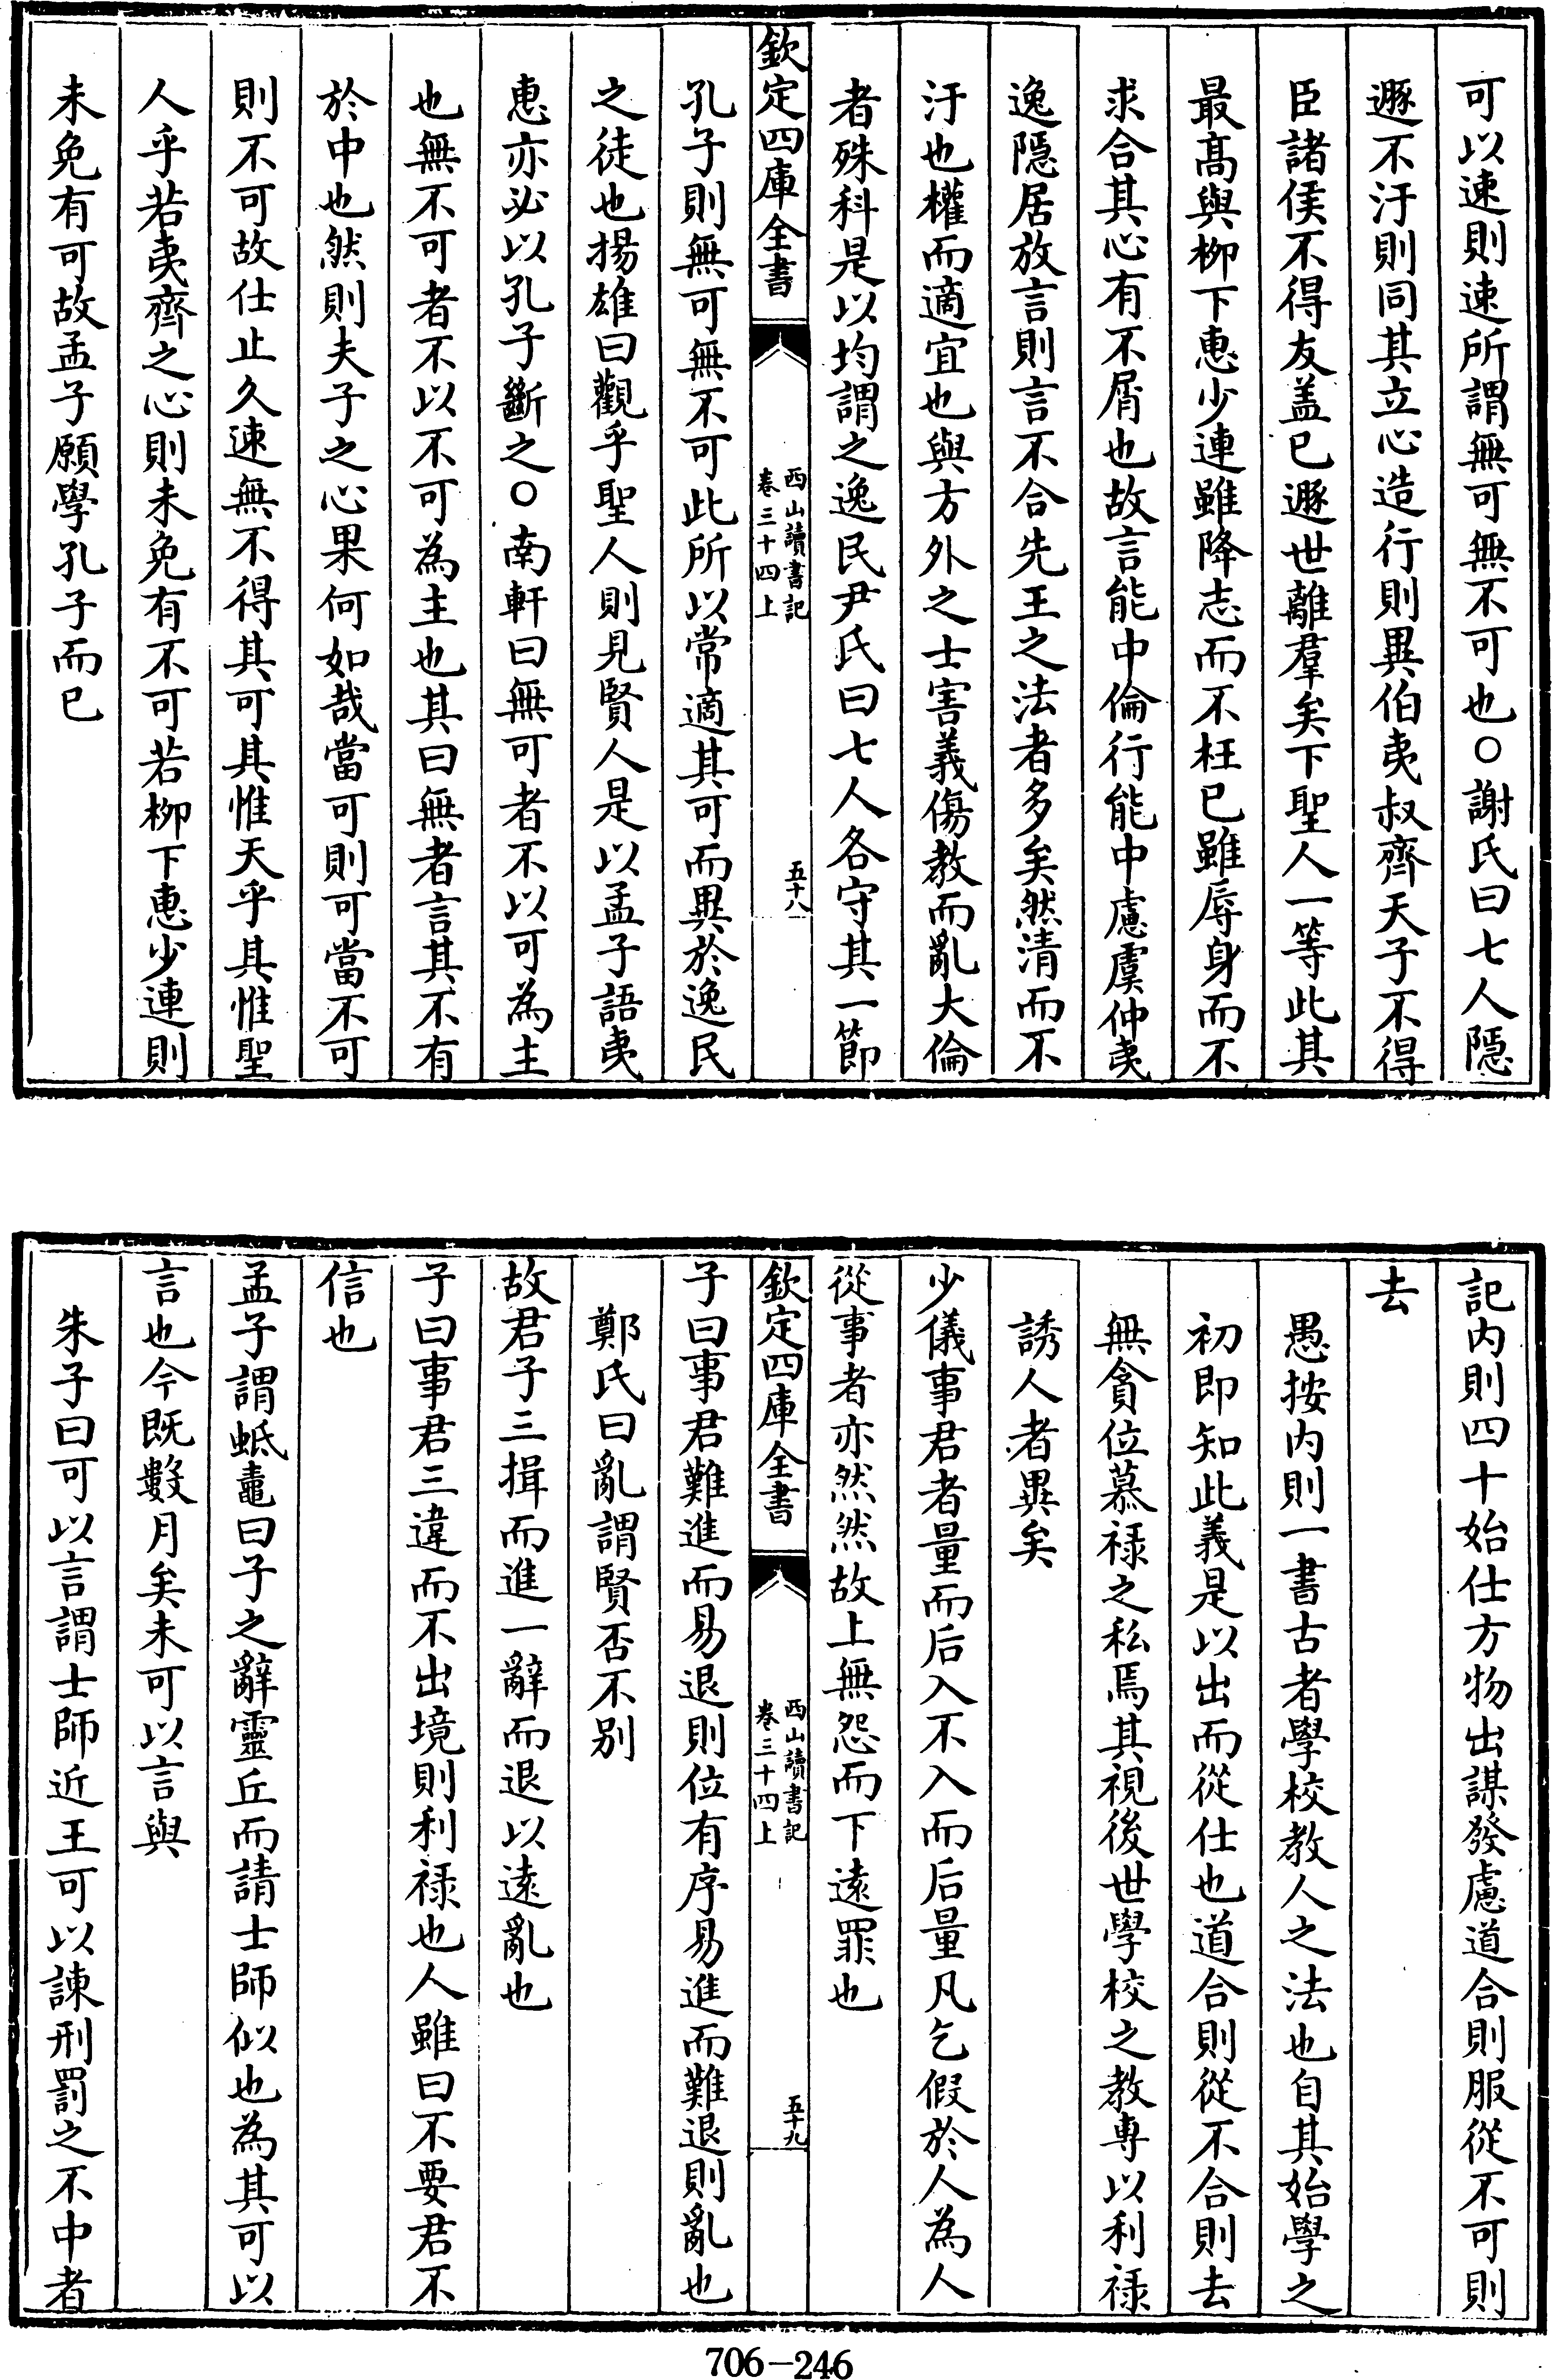 可以速則速所謂無可無不可也○謝氏曰七人隠
遯不汙則同其立心造行則異伯夷叔齊天子不得
臣諸侯不得友盖已遯世離羣矣下聖人一等此其
最髙與栁下惠少連雖降志而不枉已雖辱身而不
求合其心有不屑也故言能中倫行能中慮虞仲夷
逸隠居放言則言不合先王之法者多矣然清而不
汙也權而適宜也與方外之士害義傷教而亂大倫
者殊科是以均謂之逸民尹氏曰七人各守其一節
欽定四庫全書
西山讀書記
卷三十四上
五十八
孔子則無可無不可此所以常適其可而異於逸民
之徒也揚雄曰觀乎聖人則見賢人是以孟子語夷
惠亦必以孔子斷之○南軒曰無可者不以可為主
也無不可者不以不可為主也其曰無者言其不有
於中也然則夫子之心果何如哉當可則可當不可
則不可故仕止久速無不得其可其惟天乎其惟聖
人乎若夷齊之心則未免有不可若栁下惠少連則
未免有可故孟子願學孔子而已
記内則四十始仕方物出謀發慮道合則服從不可則
去
愚按内則一書古者學校教人之法也自其始學之
初即知此義是以出而從仕也道合則從不合則去
無貪位慕禄之私焉其視後世學校之教專以利禄
誘人者異矣
少儀事君者量而后入不入而后量凡乞假於人為人
從事者亦然然故上無怨而下遠罪也
欽定四庫全書
西山讀書記
卷三十四上
五十九
子曰事君難進而易退則位有序易進而難退則亂也
鄭氏曰亂謂賢否不别
故君子三揖而進一辭而退以遠亂也
子曰事君三違而不出境則利禄也人雖曰不要君不
信也
孟子謂蚳鼃曰子之辭靈丘而請士師似也為其可以
言也今既數月矣未可以言與
朱子曰可以言謂士師近王可以諫刑罰之不中者
706-246